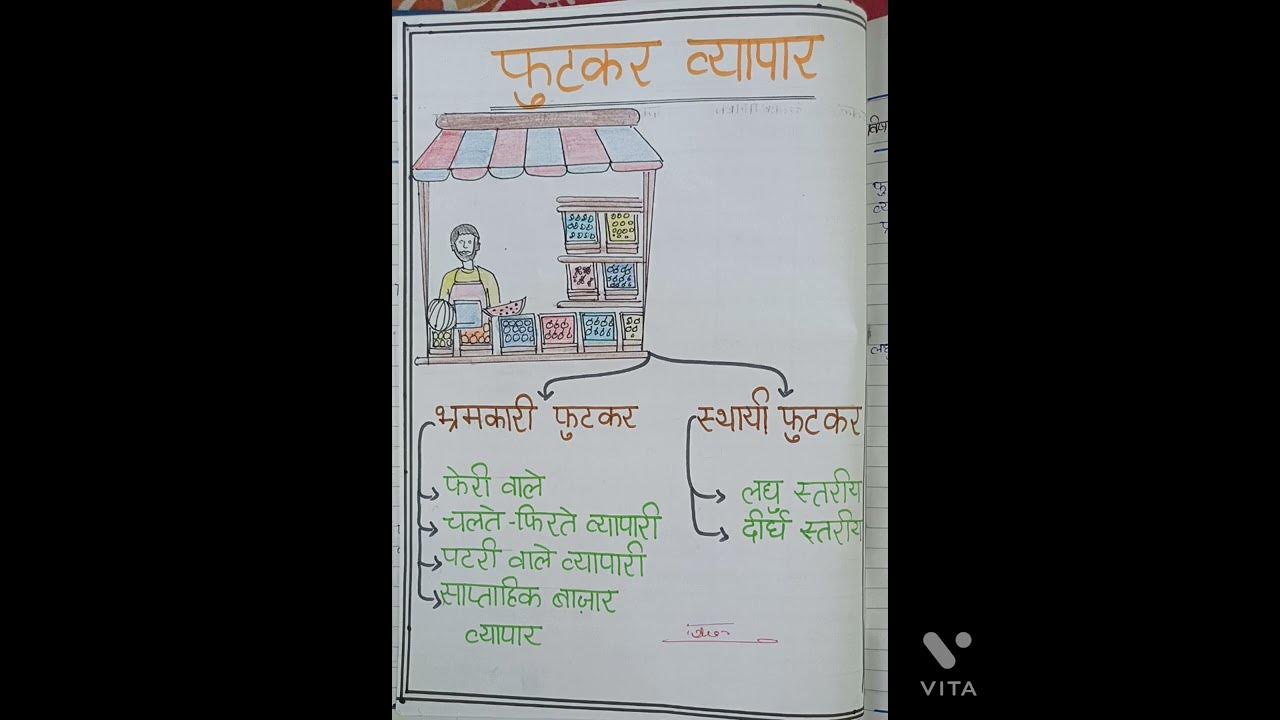 फुटकर व्यापार
भ्रमकारी फुटकर
स्थायी फुटकर
फेरी वाले
चलते-फिरते व्यापारी
पटरी वाले व्यापारी
साप्ताहिक बाज़ार
व्यापार
लघु स्तरीय
दीर्घ स्तरीय
VITA